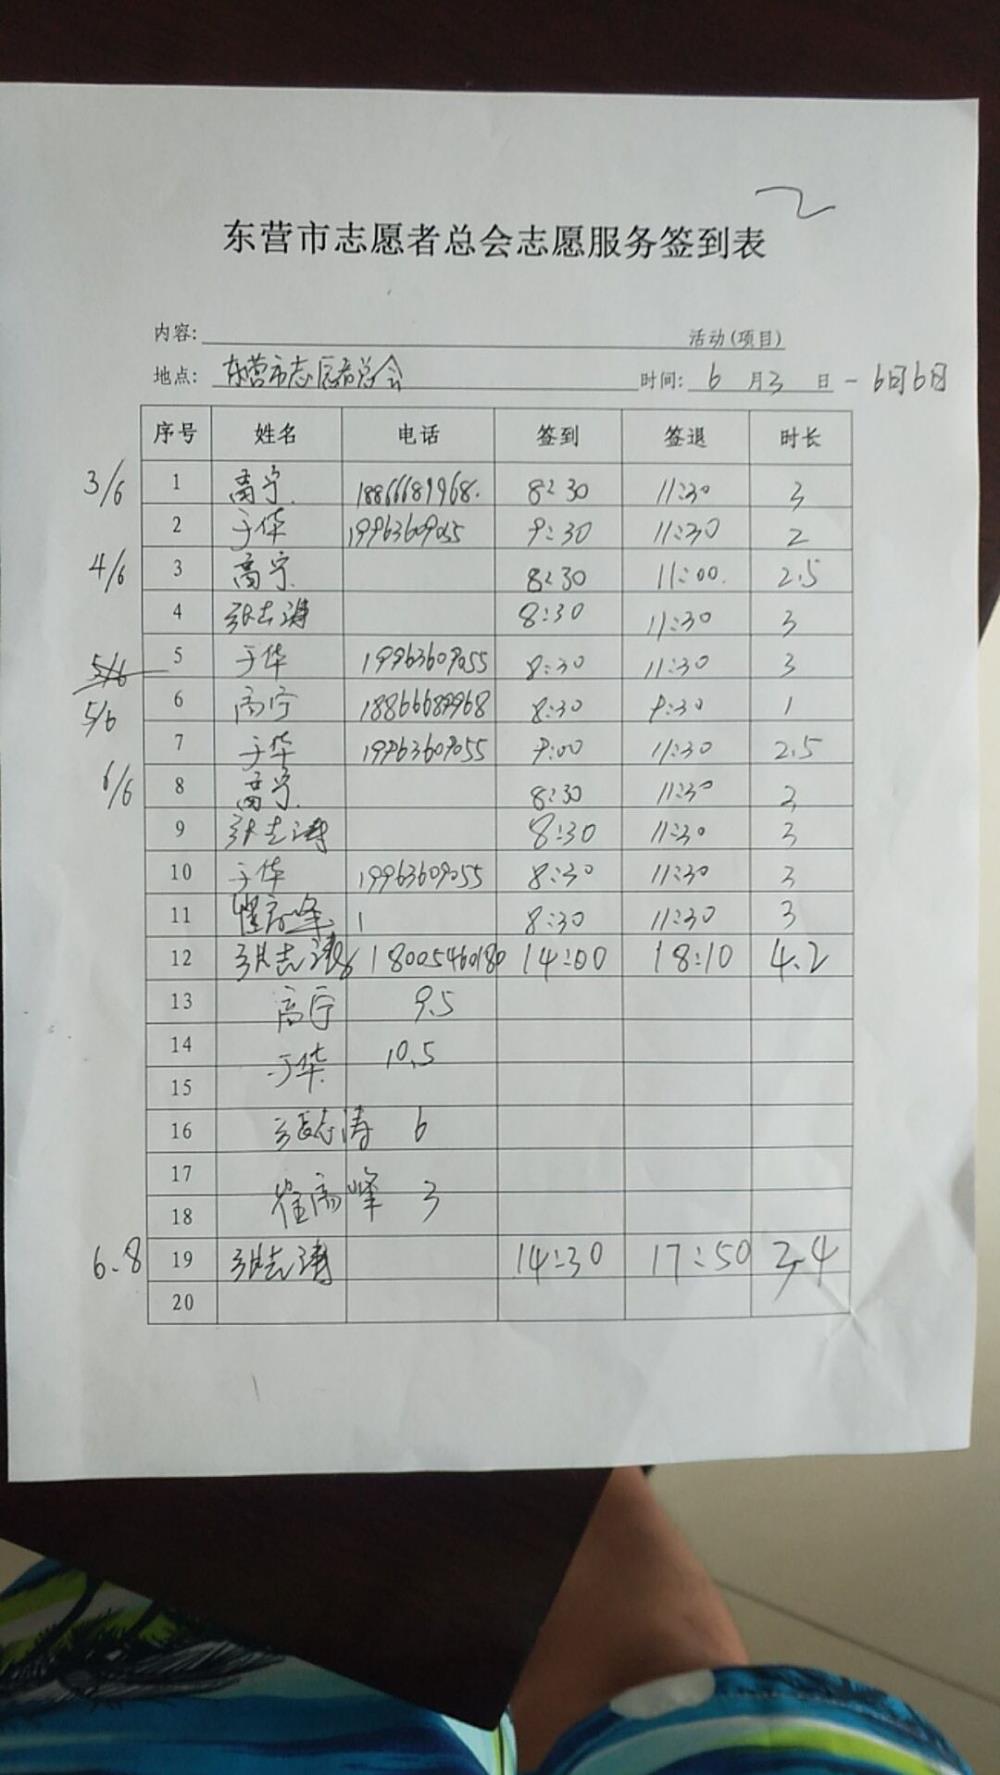 2
东营市志愿者总会志愿服务签到表
内容: 活动(项目)
地点: 东营市志愿者总会 时间: 6 月 3 日 - 6月6日
序号 姓名 电话 签到 签退 时长
3/6 1 高宁 18866689968. 8:30 11:30 3
2 于华 19963609055 9:30 11:30 2
4/6 3 高宁 8:30 11:00 2.5
4 张志涛 8:30 11:30 3
5/6 5 于华 19963609055 8:30 11:30 3
5/6 6 高宁 18866689968 8:30 9:30 1
7 于华 19963609055 9:00 11:30 2.5
6/6 8 高宁 8:30 11:30 3
9 张志涛 8:30 11:30 3
10 于华 19963609055 8:30 11:30 3
11 崔高峰 1 8:30 11:30 3
12 张志涛 18005460180 14:00 18:10 4.2
13 高宁 9.5
14 于华 10.5
15
16 张志涛 6
17 崔高峰 3
18
6.8 19 张志涛 14:30 17:50 3.4
20